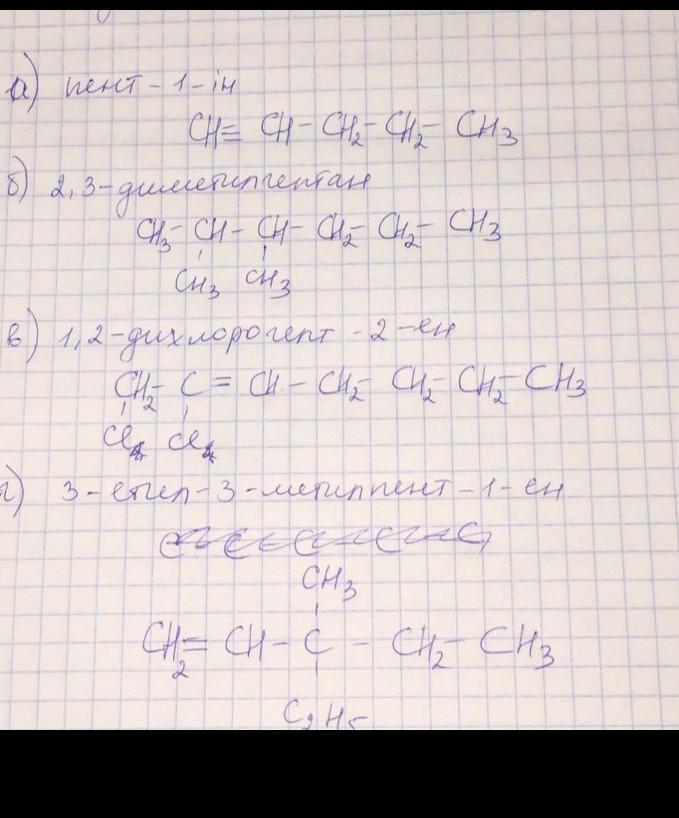 а) пент-1-ін
CH≡ CH-CH₂-CH₂-CH₃
б) 2,3-диметилгептан
CH₃-CH-CH-CH₂-CH₂-CH₃
CH₃ CH₃
в) 1,2-дихлорогепт-2-ен
CH₂-C=CH-CH₂-CH₂-CH₂-CH₃
Cl Cl
г) 3-етил-3-метилпент-1-ен
CH₃
CH₂=CH-C-CH₂-CH₃
C₂H₅